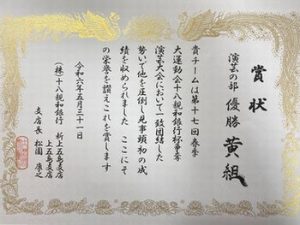 賞状
演芸の部 優勝 黄組
貴チームは第十七回春季
大運動会十八親和銀行杯争奪
演芸大会において一致団結した
勢いで他を圧倒し見事頭初の成
績を収められました ここにそ
の栄誉を讃えこれを賞します
令和六年五月三十一日
(株)十八親和銀行 新上五島支店
上五島支店
支店長 松園 康之